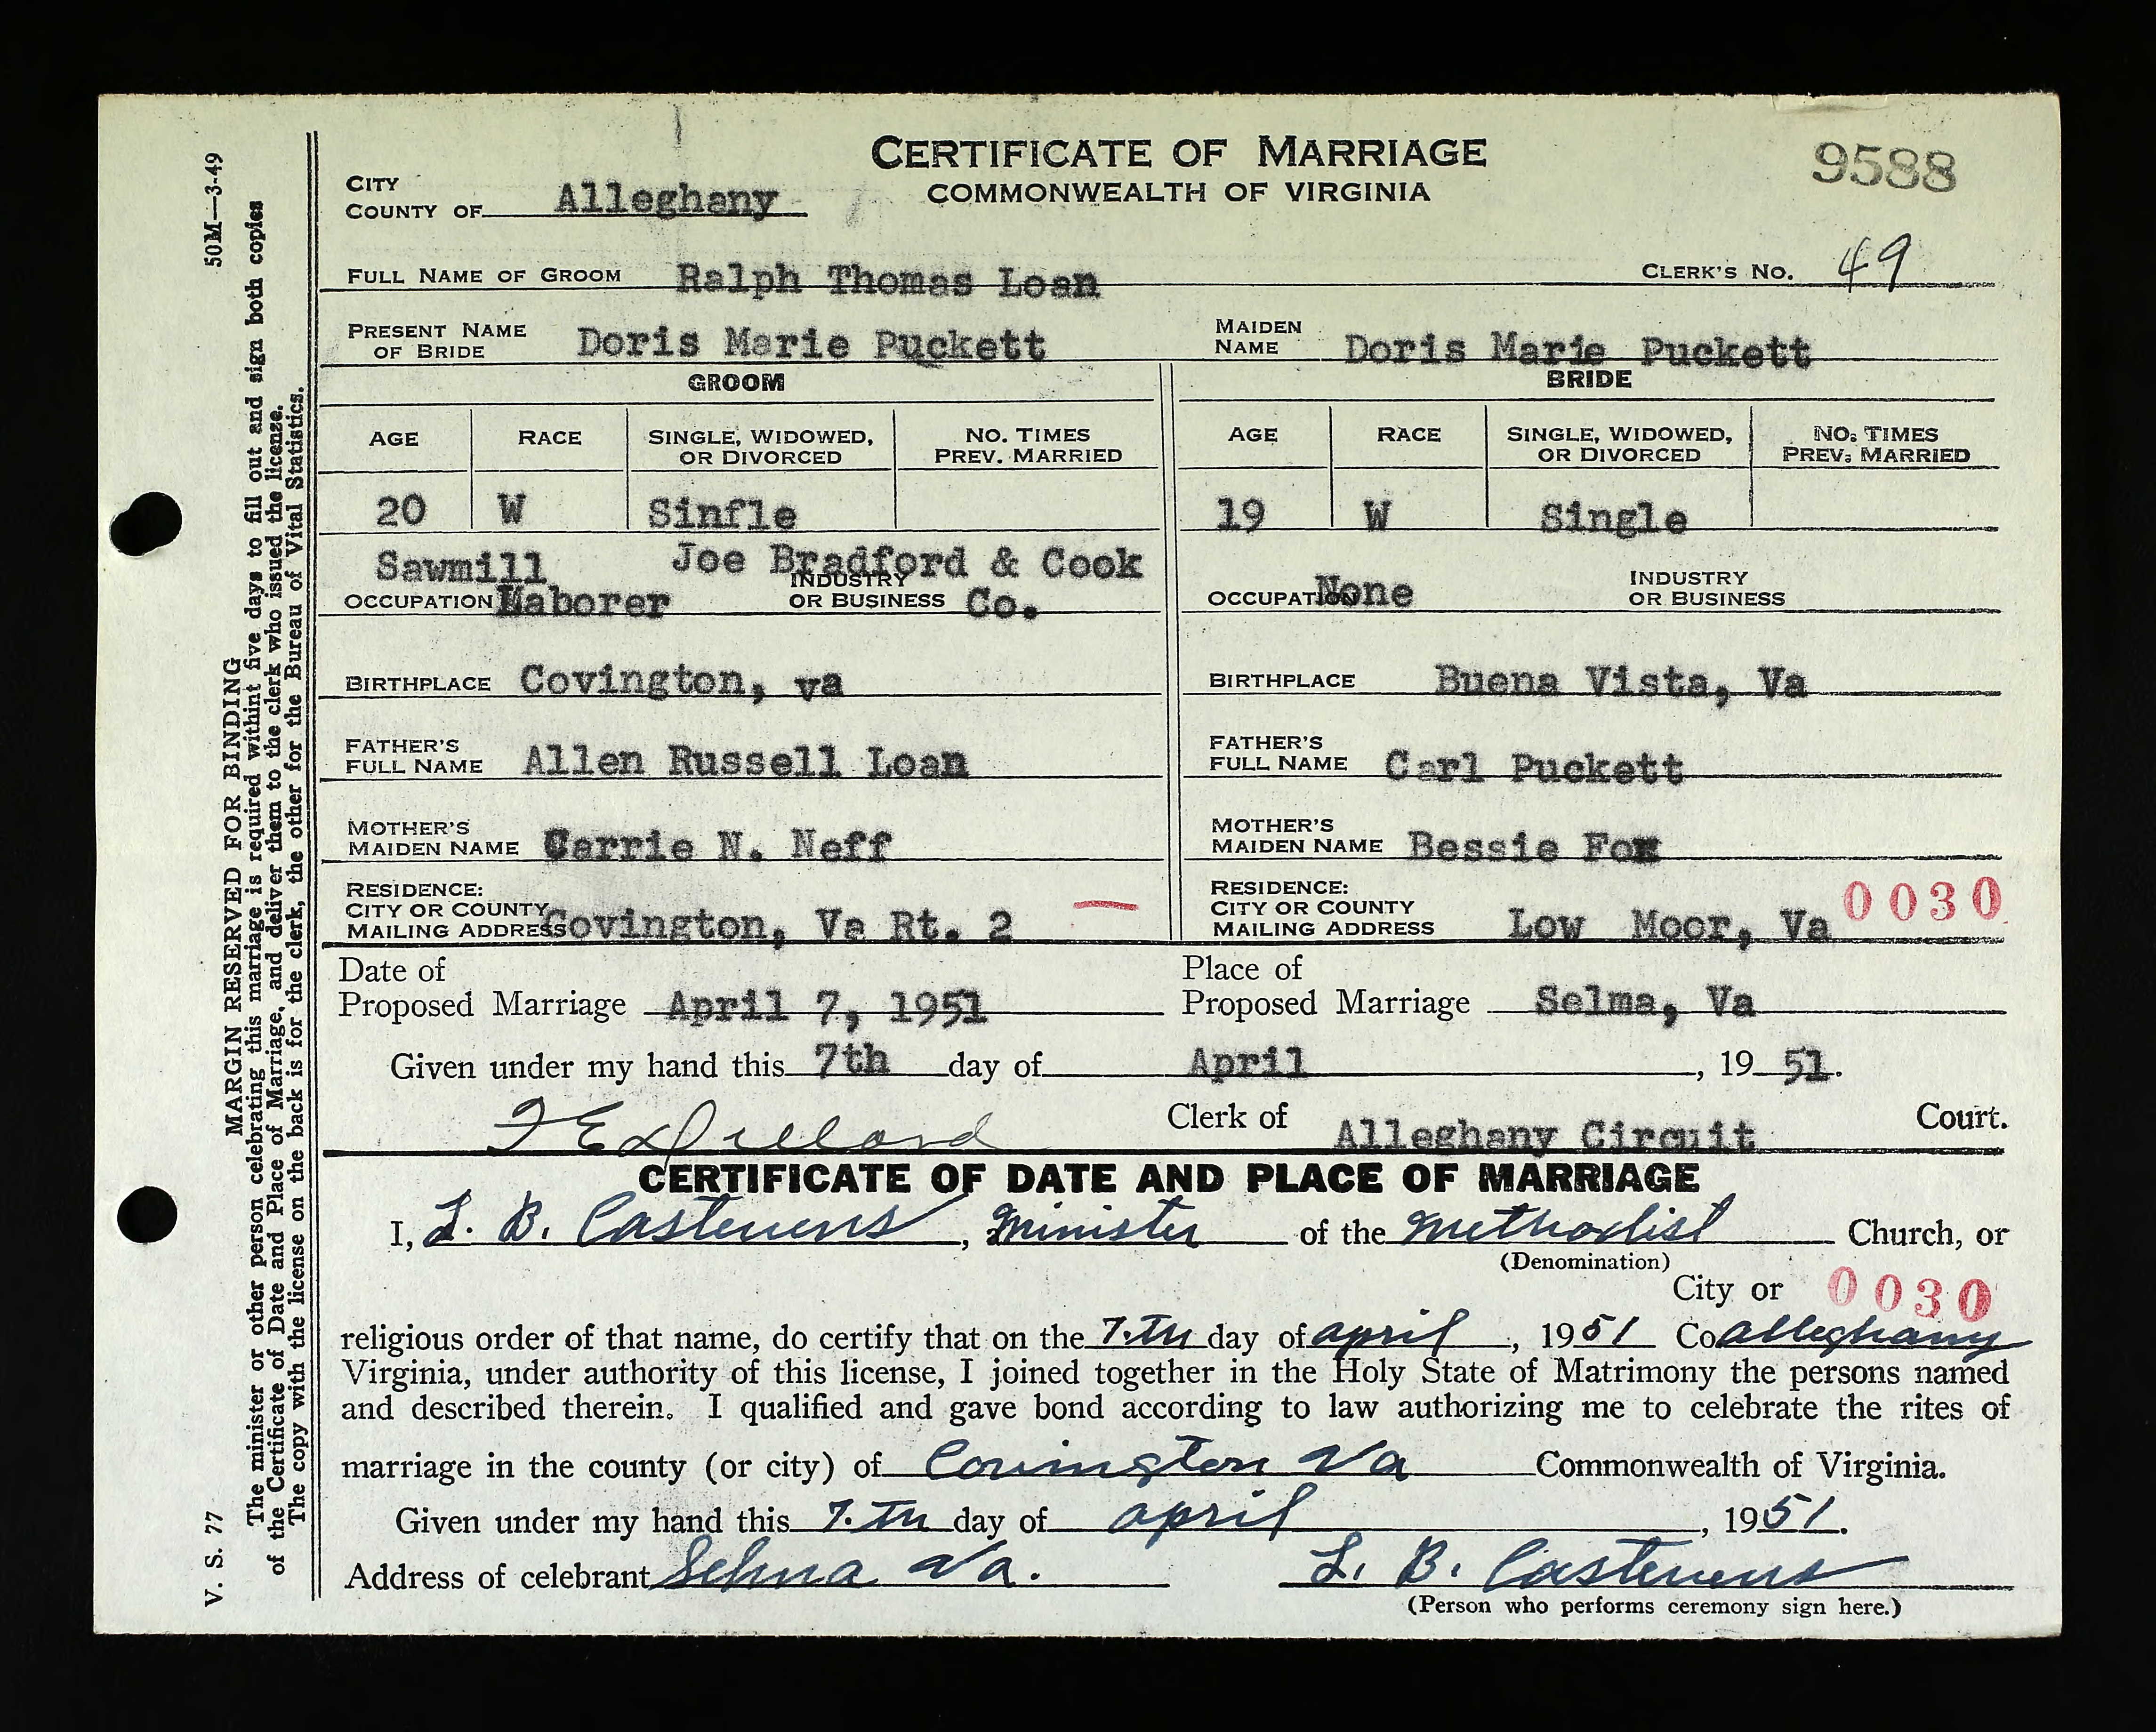 CERTIFICATE OF MARRIAGE
COMMONWEALTH OF VIRGINIA
9588
CITY
COUNTY OF Alleghany
FULL NAME OF GROOM Ralph Thomas Loan CLERK'S NO. 49
PRESENT NAME OF BRIDE Doris Marie Puckett MAIDEN NAME Doris Marie Puckett
GROOM BRIDE
AGE RACE SINGLE, WIDOWED, OR DIVORCED NO. TIMES PREV. MARRIED AGE RACE SINGLE, WIDOWED, OR DIVORCED NO. TIMES PREV. MARRIED
20 W Sinfle 19 W Single
Sawmill Joe Bradford & Cook
OCCUPATION Laborer INDUSTRY OR BUSINESS Co. OCCUPATION None INDUSTRY OR BUSINESS
BIRTHPLACE Covington, va BIRTHPLACE Buena Vista, Va
FATHER'S FULL NAME Allen Russell Loan FATHER'S FULL NAME Carl Puckett
MOTHER'S MAIDEN NAME Carrie N. Neff MOTHER'S MAIDEN NAME Bessie Fox
RESIDENCE: CITY OR COUNTY MAILING ADDRESS Covington, Va Rt. 2 RESIDENCE: CITY OR COUNTY MAILING ADDRESS Low Moor, Va 0030
Date of Proposed Marriage April 7, 1951 Place of Proposed Marriage Selma, Va
Given under my hand this 7th day of April, 19 51.
Dillard Clerk of Alleghany Circuit Court.
CERTIFICATE OF DATE AND PLACE OF MARRIAGE
I, L. B. Castevens, Minister of the Methodist Church, or
(Denomination)
City or 0030
religious order of that name, do certify that on the 7.TH day of april, 1951 Co alleghany
Virginia, under authority of this license, I joined together in the Holy State of Matrimony the persons named
and described therein. I qualified and gave bond according to law authorizing me to celebrate the rites of
marriage in the county (or city) of Covington Va Commonwealth of Virginia.
Given under my hand this 7.TH day of april, 1951.
Address of celebrant Selma Va. L. B. Castevens
(Person who performs ceremony sign here.)
V. S. 77 50M—3-49
MARGIN RESERVED FOR BINDING
The minister or other person celebrating this marriage is required withint five days to fill out and sign both copies
of the Certificate of Date and Place of Marriage, and deliver them to the clerk who issued the license.
The copy with the license on the back is for the clerk, the other for the Bureau of Vital Statistics.